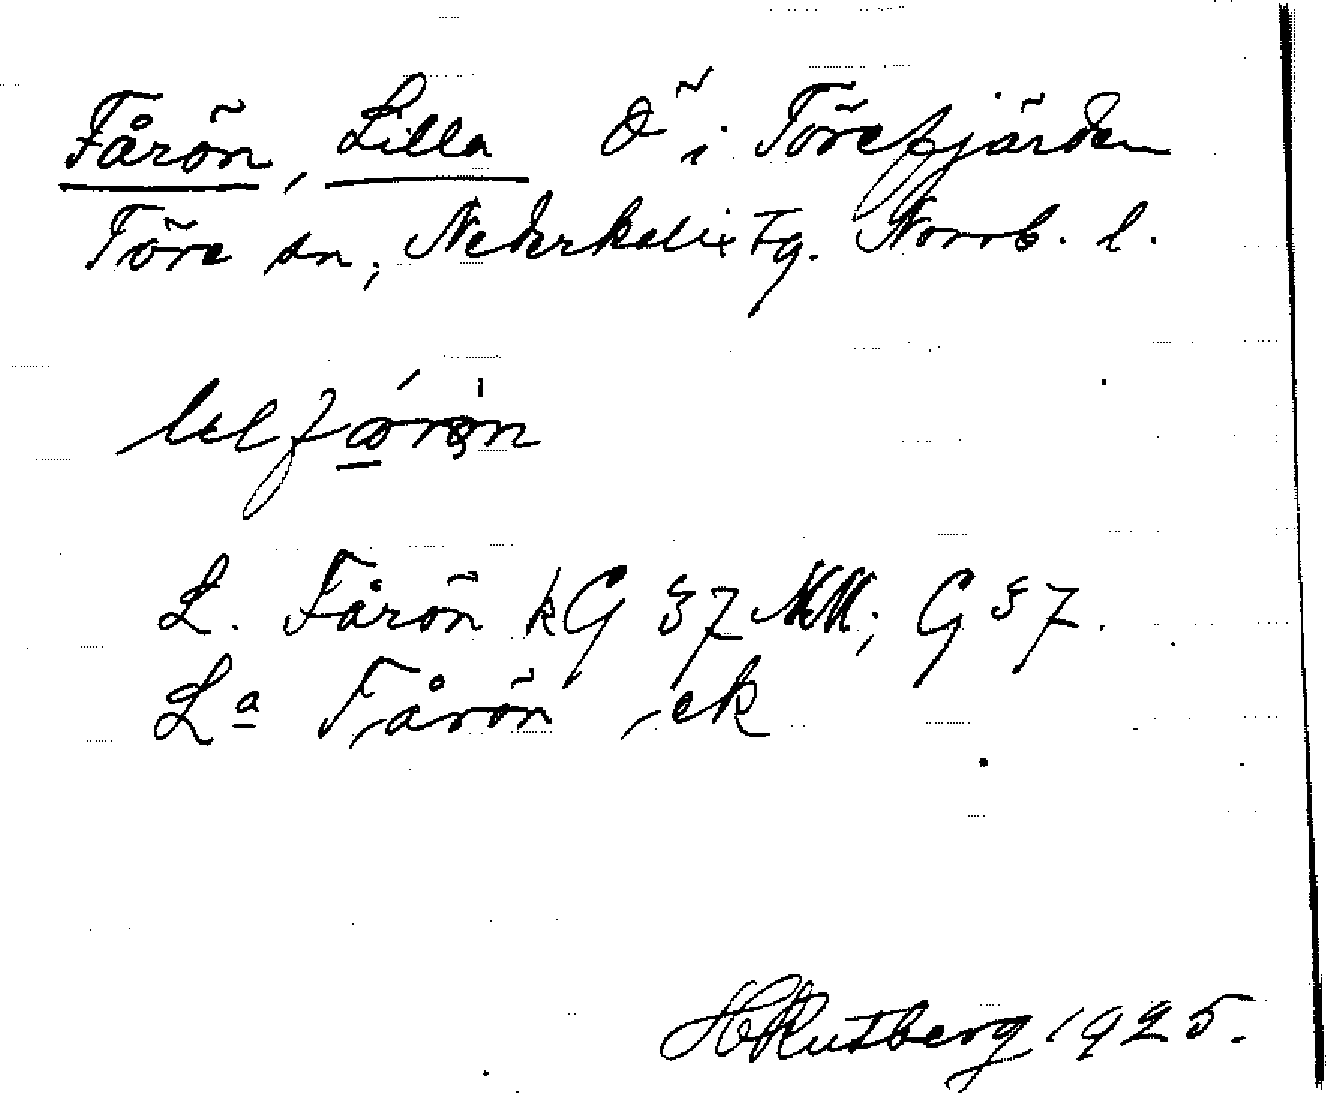 Fårön, Lilla Ö i Törefjärden
Töre sn, Nederkalix tg. Norrb. l.
L. Fårön kG 57 NM; G 57.
La Fårön, ek
H Rutberg 1925.